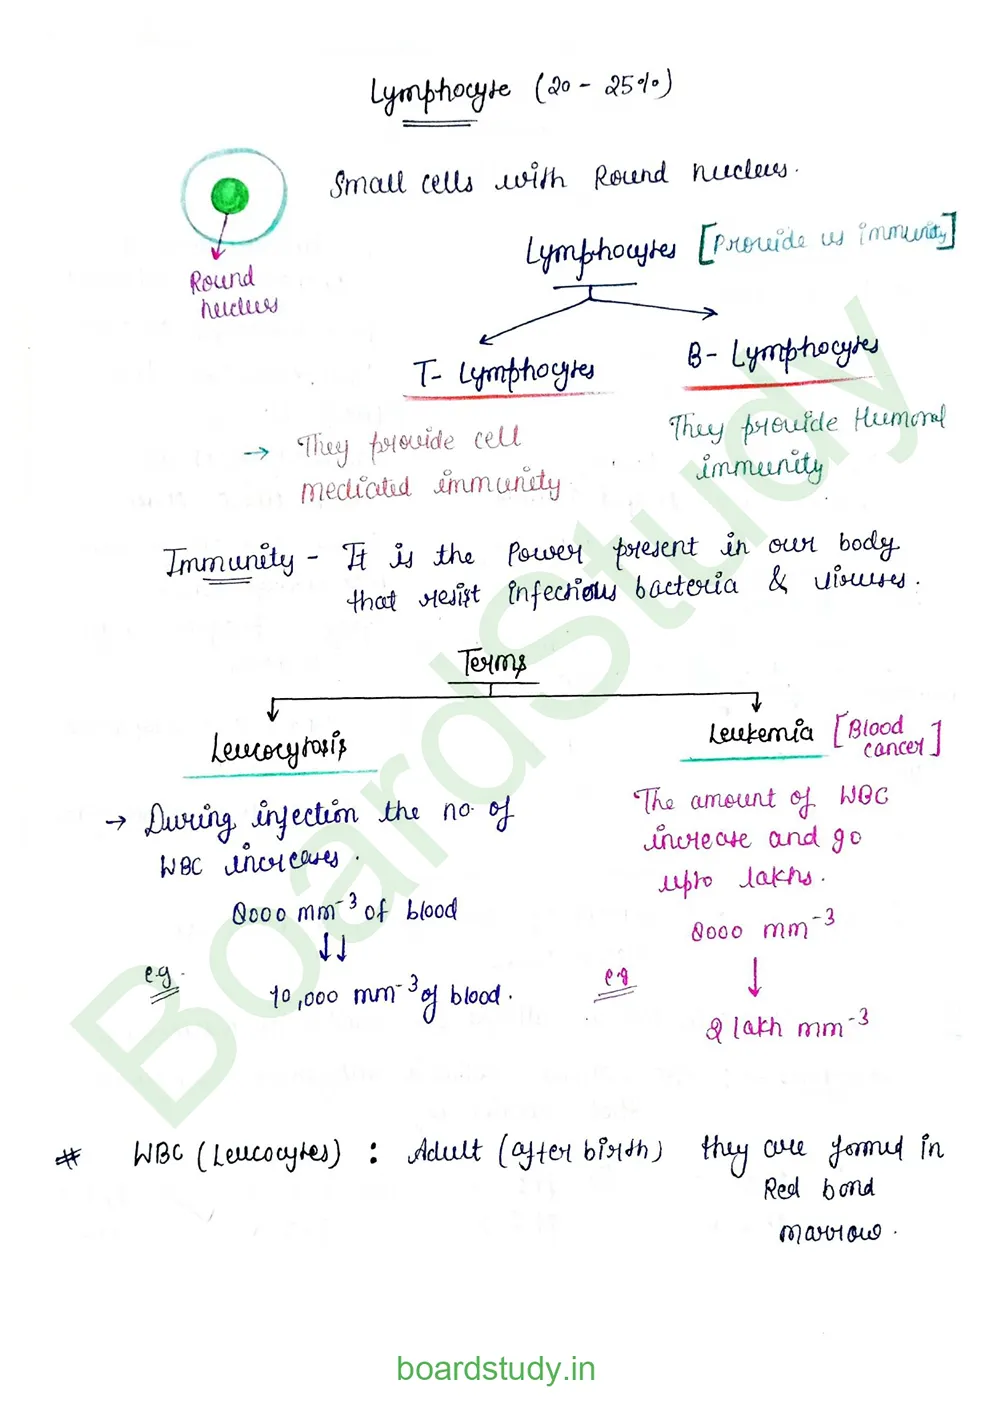 Lymphocyte (20 - 25%)
Small cells with Round nucleus.
Round
nucleus
Lymphocytes [Provide us immunity]
T- Lymphocytes
B- Lymphocytes
→ They provide cell
mediated immunity
They provide Humoral
immunity
Immunity - It is the Power present in our body
that resist infectious bacteria & viruses.
Terms
Leucocytosis
Leukemia [Blood
cancer]
→ During infection the no. of
WBC increases.
8000 mm⁻³ of blood
↓↓
e.g.
10,000 mm⁻³ of blood.
The amount of WBC
increase and go
upto lakhs.
8000 mm⁻³
↓
e.g
2 lakh mm⁻³
# WBC (Leucocytes) : Adult (after birth) they are formed in
Red bond
marrow.
BoardStudy
boardstudy.in